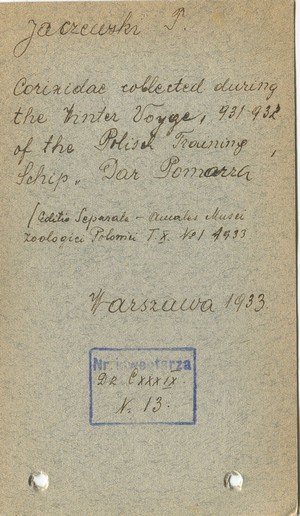 Jaczewski P.
Corixidae collected during
the Winter Voyge, 931-932
of the Polish Training
Schip „ Dar Pomorza
/Editio Separata - Annales Musei
Zoologici Polonici T. X. No 1 1933
Warszawa 1933
Nr. inwentarza
Dz. CXXXIX.
N. 13.